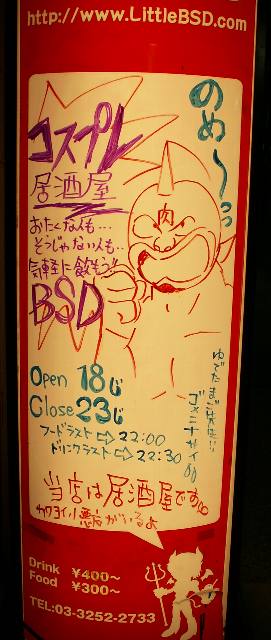 http://www.LittleBSD.com
のめ〜っっ
コスプレ
居酒屋
おたくな人も…
そうじゃない人も…
気軽に飲もう!!
BSD
肉
Open 18じ
Close 23じ
フードラスト⇨22:00
ドリンクラスト⇨22:30
ゆでたまご先生!!
ゴメンナサイ
当店は居酒屋です。
カワイイ悪魔がいるよ
Drink ¥400~
Food ¥300~
TEL:03-3252-2733